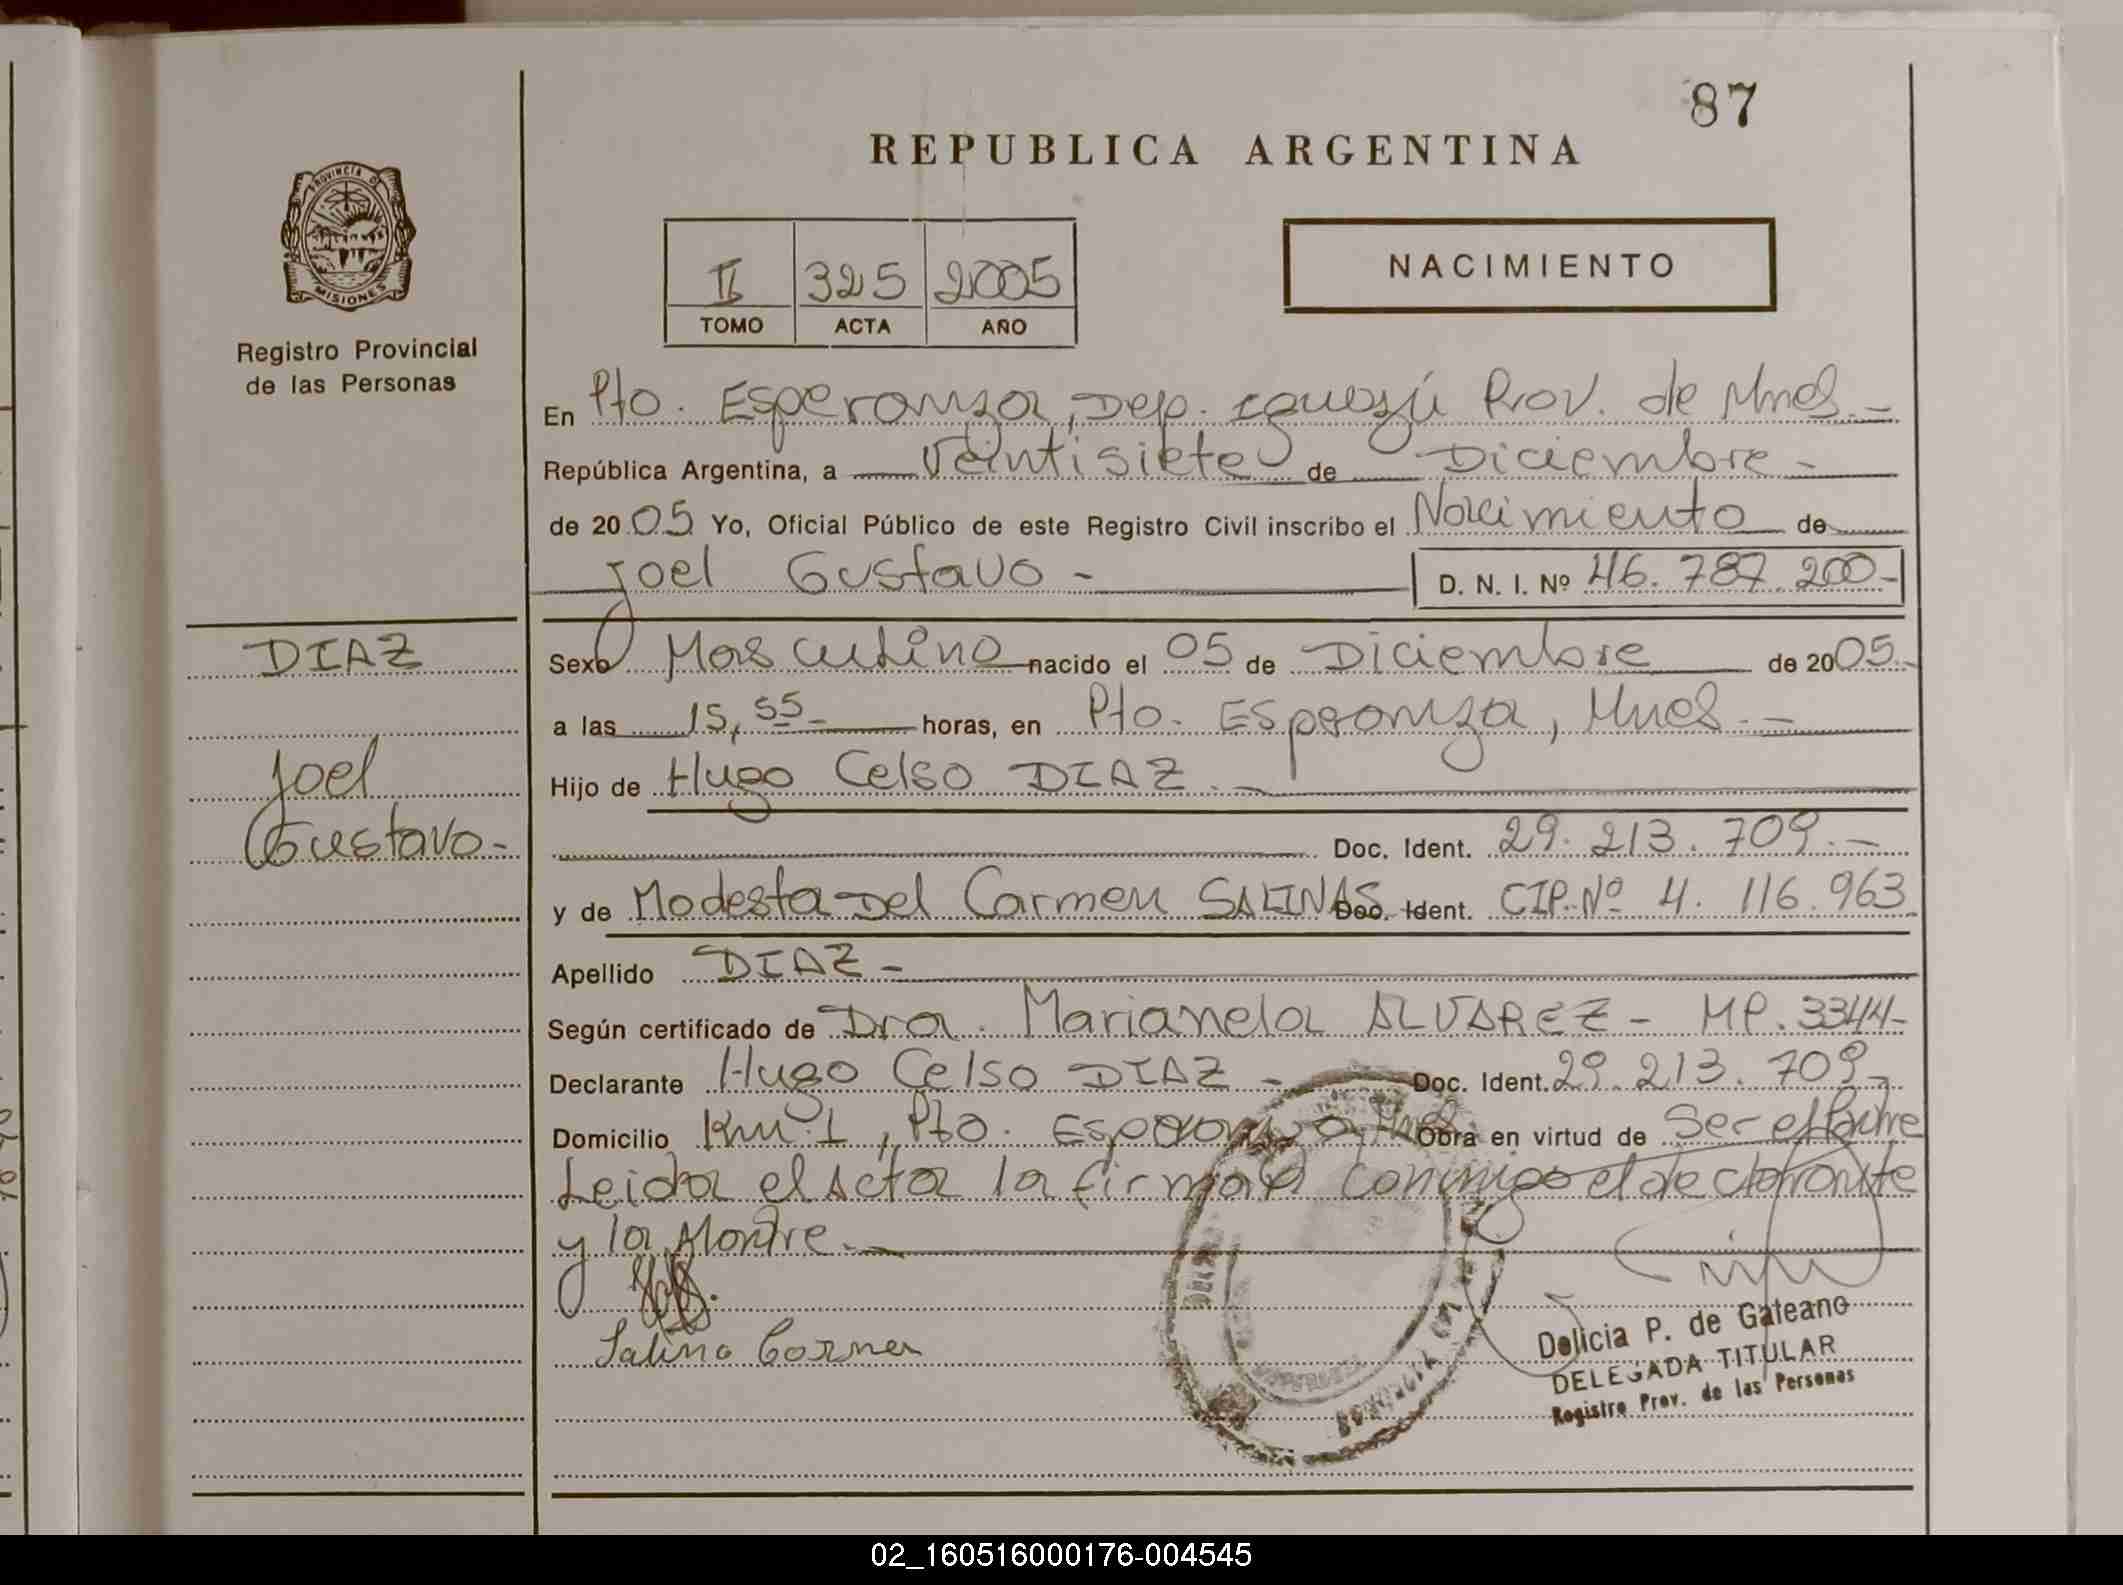 87
REPUBLICA ARGENTINA
PROVINCIA DE
MISIONES
Registro Provincial
de las Personas
II 325 2005
TOMO ACTA AÑO
NACIMIENTO
En Pto. Esperanza, Dep. Iguazú Prov. de Mnes.-
República Argentina, a Veintisiete de Diciembre-
de 2005 Yo, Oficial Público de este Registro Civil inscribo el Nacimiento de
Joel Gustavo- D. N. I. Nº 46.787.200-
DIAZ
Joel
Gustavo-
Sexo Masculino nacido el 05 de Diciembre de 2005.
a las 15,55- horas, en Pto. Esperanza, Mnes.-
Hijo de Hugo Celso DIAZ.-
Doc. Ident. 29.213.709.-
y de Modesta Del Carmen SALINAS Doc. Ident. CIP.Nº 4.116.963
Apellido DIAZ-
Según certificado de Dra. Marianela ALVAREZ- MP. 3344-
Declarante Hugo Celso DIAZ- Doc. Ident. 29.213.709-
Domicilio Km 1, Pto. Esperanza, Mnes Obra en virtud de Ser el Padre
Leida el Acta la firman conmigo el declarante
y la Madre.-
Salina Carmen
Delicia P. de Galeano
DELEGADA TITULAR
Registro Prov. de las Personas
02_160516000176-004545